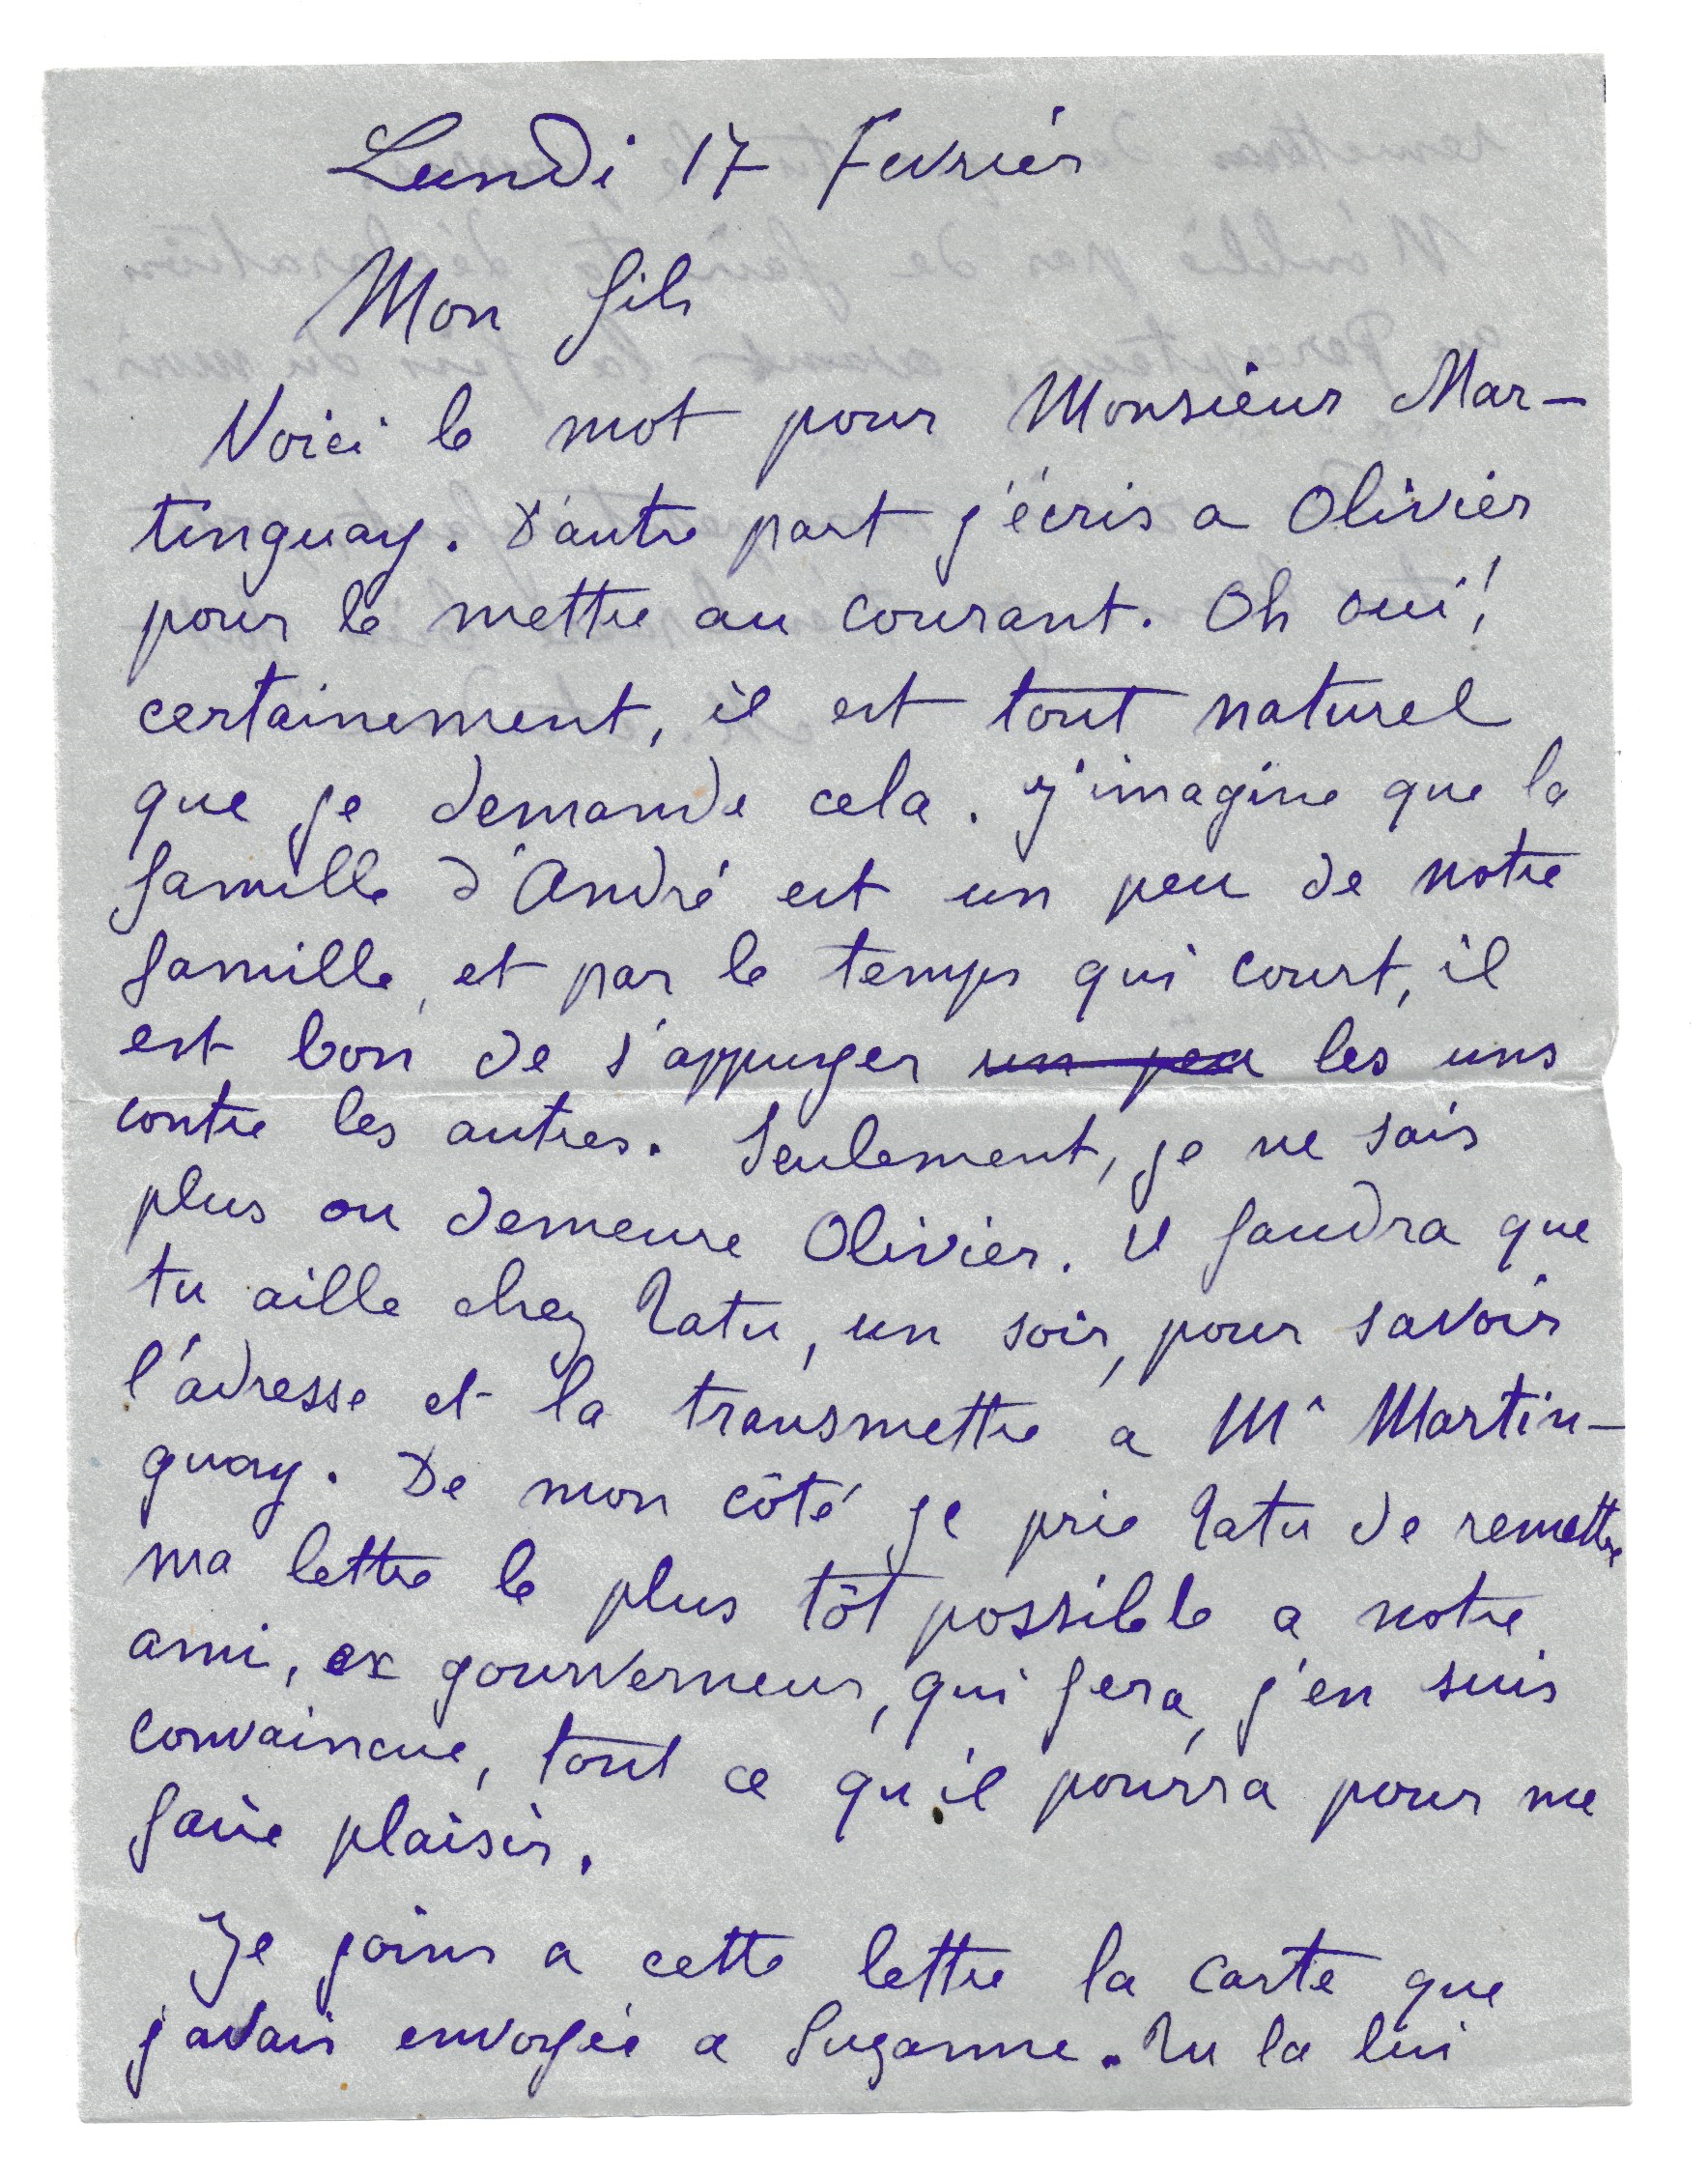 Lundi 17 Fevrier
Mon fils
Voici le mot pour Monsieur Mar-
tinguay. D'autre part j'écris a Olivier
pour le mettre au courant. Oh oui!
certainement, il est tout naturel
que je demande cela. J'imagine que la
famille d'André est un peu de notre
famille, et par le temps qui court, il
est bon de s'appuyer un peu les uns
contre les autres. Seulement, je ne sais
plus ou demeure Olivier. Il faudra que
tu aille chez Tatu, un soir, pour savoir
l'adresse et la transmettre a Mr Martin-
guay. De mon côté je prie Tatu de remettre
ma lettre le plus tôt possible a notre
ami, ex gouverneur, qui fera, j'en suis
convaincue, tout ce qu'il pourra pour me
faire plaisir.
Je joins a cette lettre la carte que
j'avais envoyée a Suzanne. Tu la lui